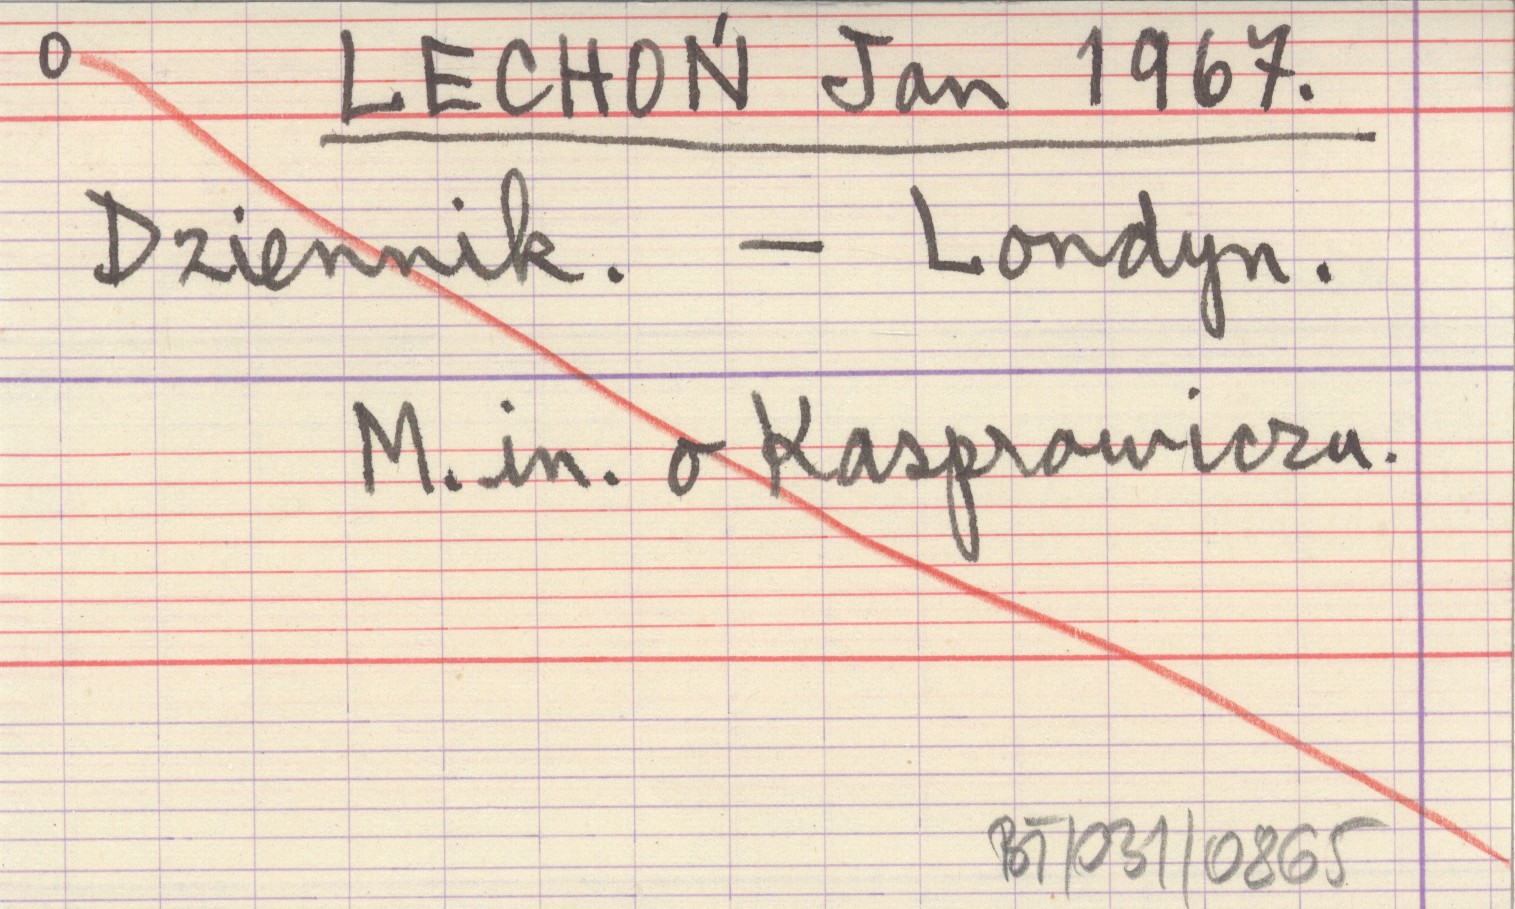 0 LECHOŃ Jan 1967.
Dziennik. — Londyn.
M. in. o Kasprowiczu.
BT/031/0865